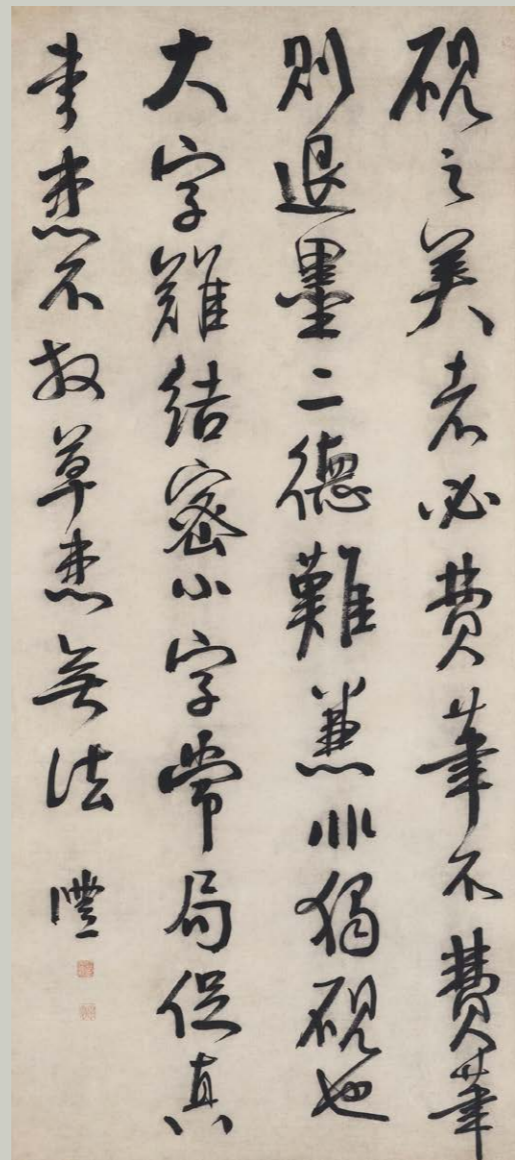 硯之美者必費筆不費筆
則退墨二德難兼非獨硯也
大字難結密小字常局促真
書患不放草患無法